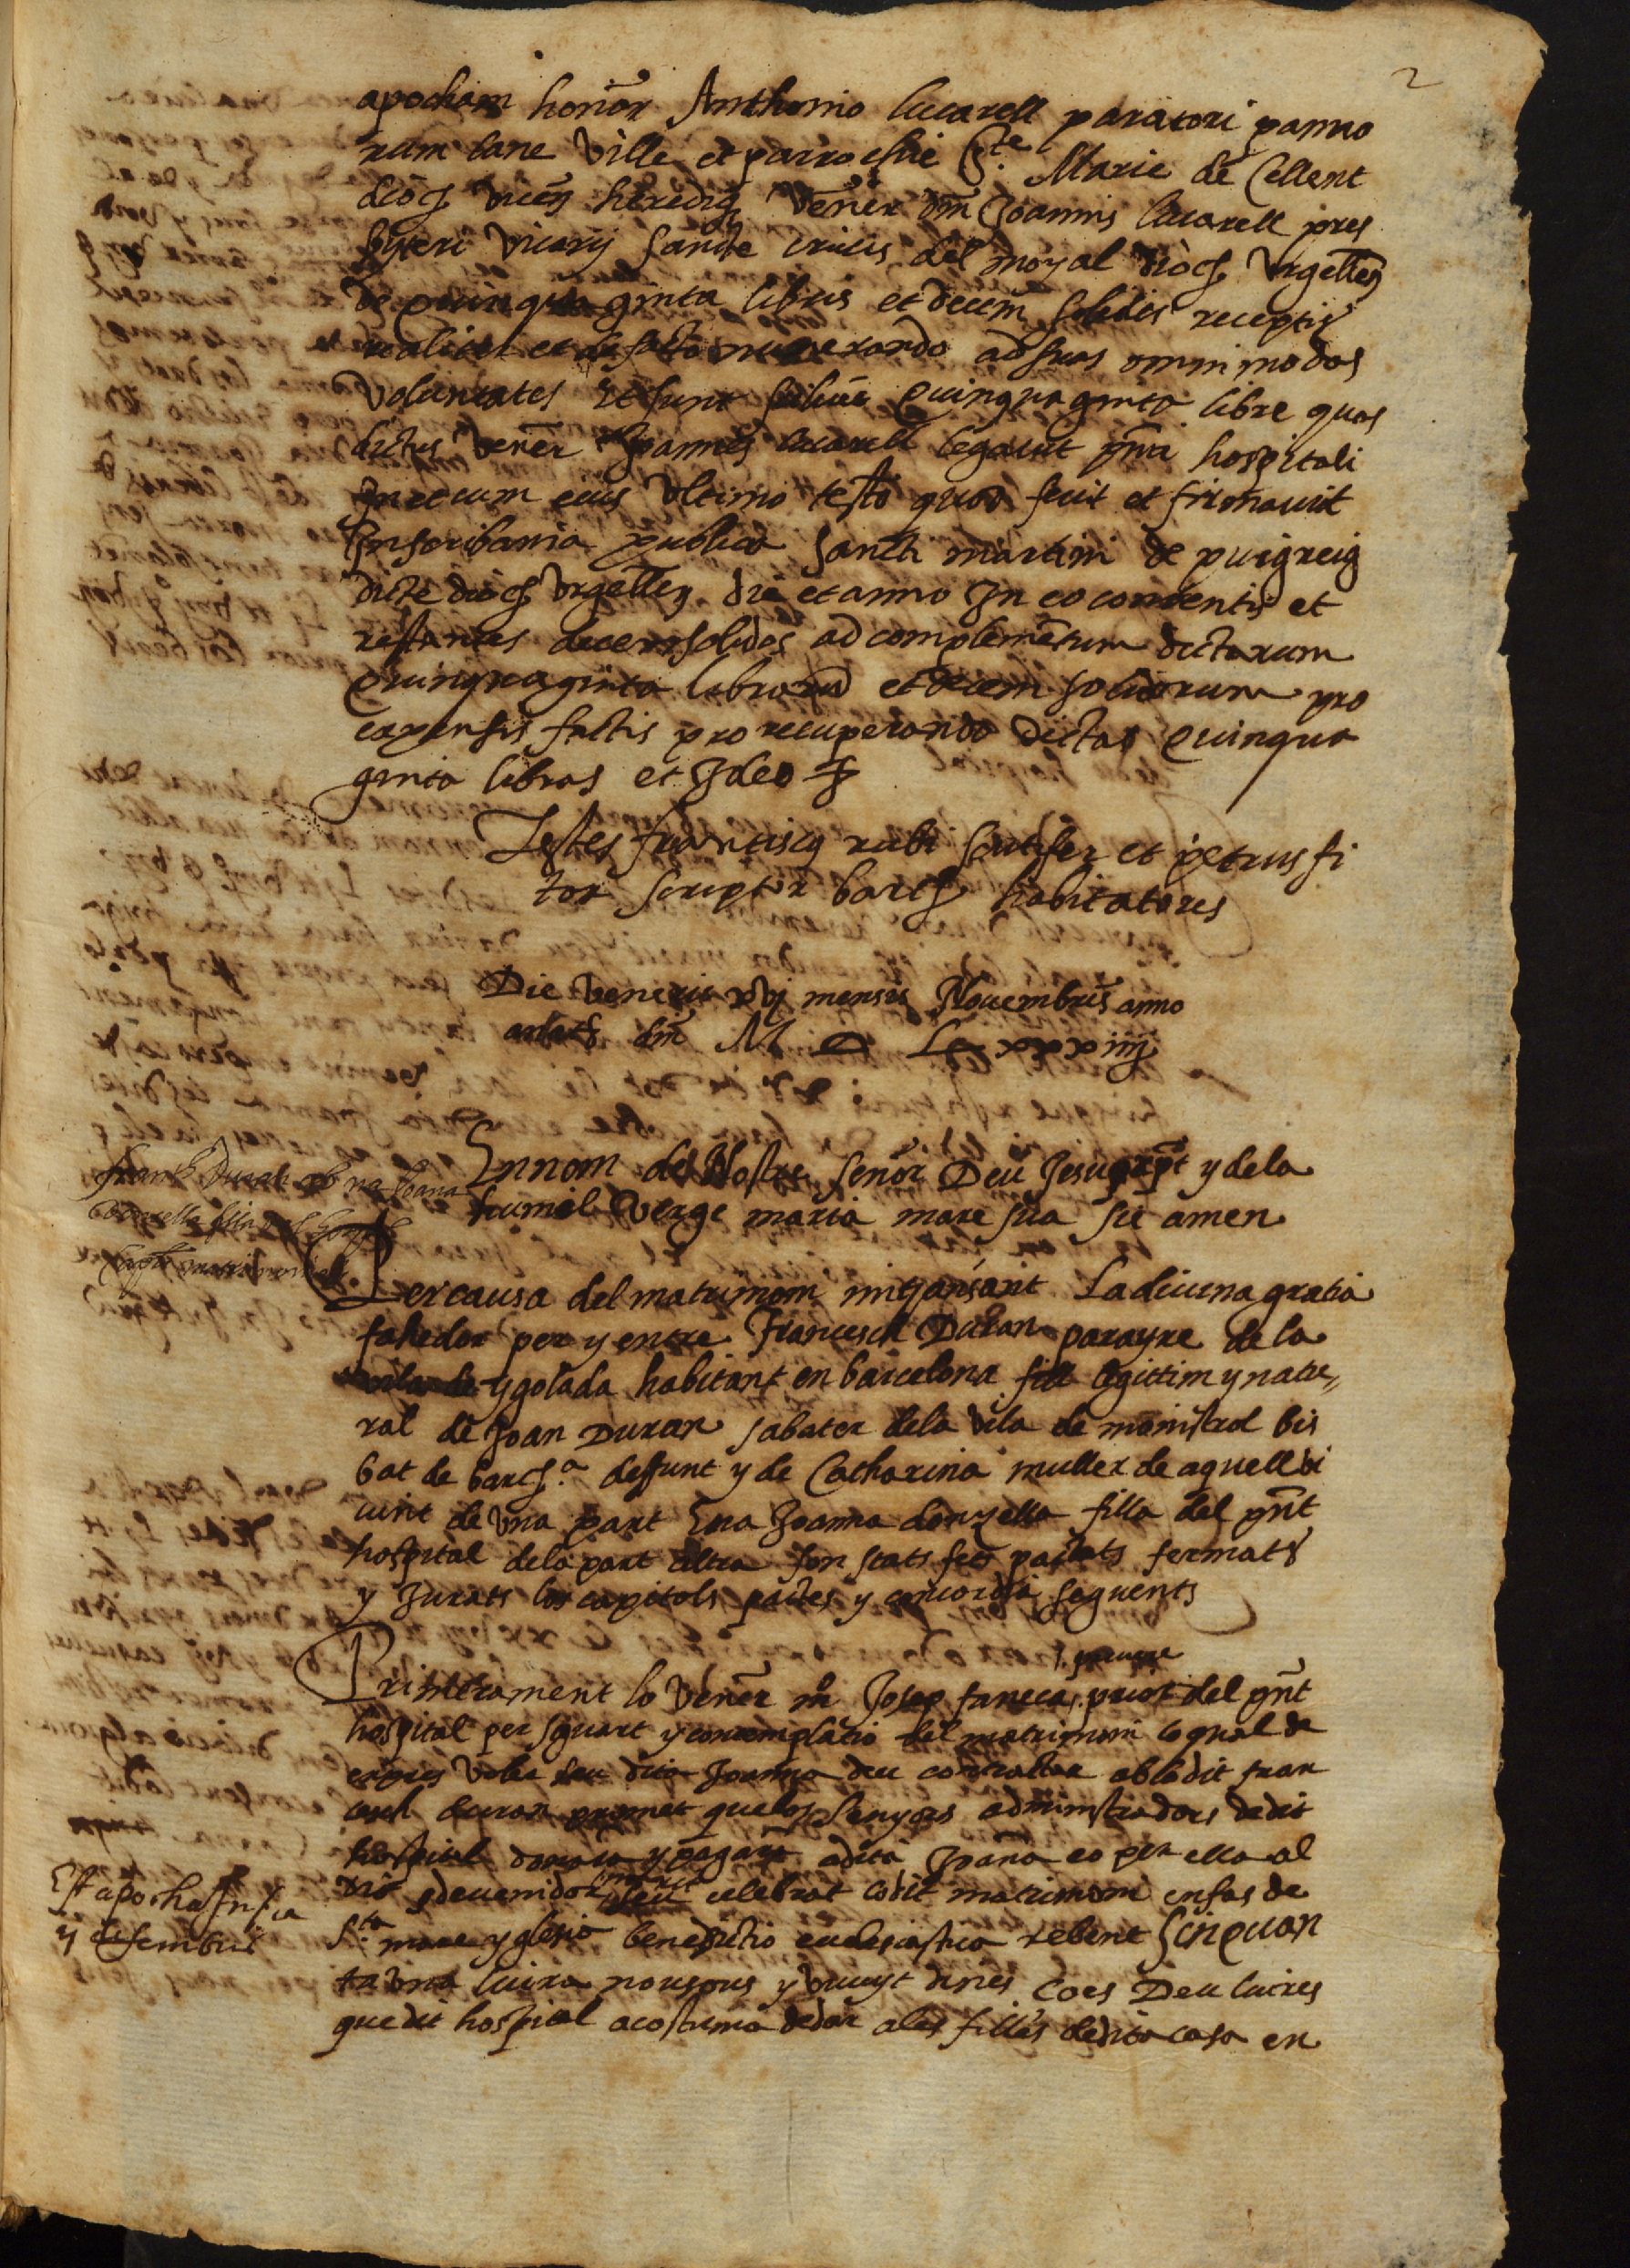 2
apocham honor Anthonio lucarell paratori panno
rum lane Ville et parrochie Ste Marie de Cellent
dioc vicen heredi Vener dm Joannis lucarell pres
byteri Vicarij Sancte crucis del moyal dioc Vrgellen
de quinquaginta libris et decem solidis receptis
realiter et de facto numerando ad suas omnimodas
Voluntates Et sunt quinquaginta libre quas
dictus Vener Joannes lucarell legauit pnti hospitali
In et cum eius Vltimo testo quod fecit et firmauit
In scribania publica Sancti martini de puigreig
dicte dioc Vrgellen die et anno In eo contentis et
restantes decem solidos ad complementum dictarum
quinquaginta librarum et decem solidorum pro
expensis factis pro recuperando dictas quinqua
ginta libras et Ideo
Testes franciscus rubi et petrus fi
tor scriptor barc habitatores
Die Veneris xvj mensis Nouembris anno
dm M D Lxxxiiij
En nom de Nostre senor Deu Jesuxpt y dela
humil Verge maria mare sua sie amen
Franch Duran ab na Joana
donzella filla del hospital
Capls matrimonials
Per causa del matrimoni mitjansant La diuina gratia
fahedor per y entre Francesch Duran parayre de la
vila de ygolada habitant en barcelona fill legittim y natu
ral de Joan Duran sabater dela vila de monistrol bis
bat de barca deffunt y de Catharina muller de aquell vi
uint de vna part E na Joanna donzella filla del pnt
hospital dela part altra son stats fets pactats fermats
y Jurats los capitols pactes y concordia seguents
Primerament lo Vener mr Josep faneca, preuere prior del pnt
hospital per sguart y contemplatio del matrimoni lo qual de
expres voler seu dita Joanna deu contractar ab lo dit fran
cesch duran promet que los Senyors administradors de dit
hospital donara y pagara a dita Joana eo per ella al
dit sdeuenidor marit seu celebrat lo dit matrimoni en fas de
Sta mare yglesia benedictio ecclesiastica rebent Sinquan
ta vna lliura nou sous y vuyt dines ço es Deu liures
que dit hospital acostuma de dar a les filles de dita casa en
Est apocha In
desembre